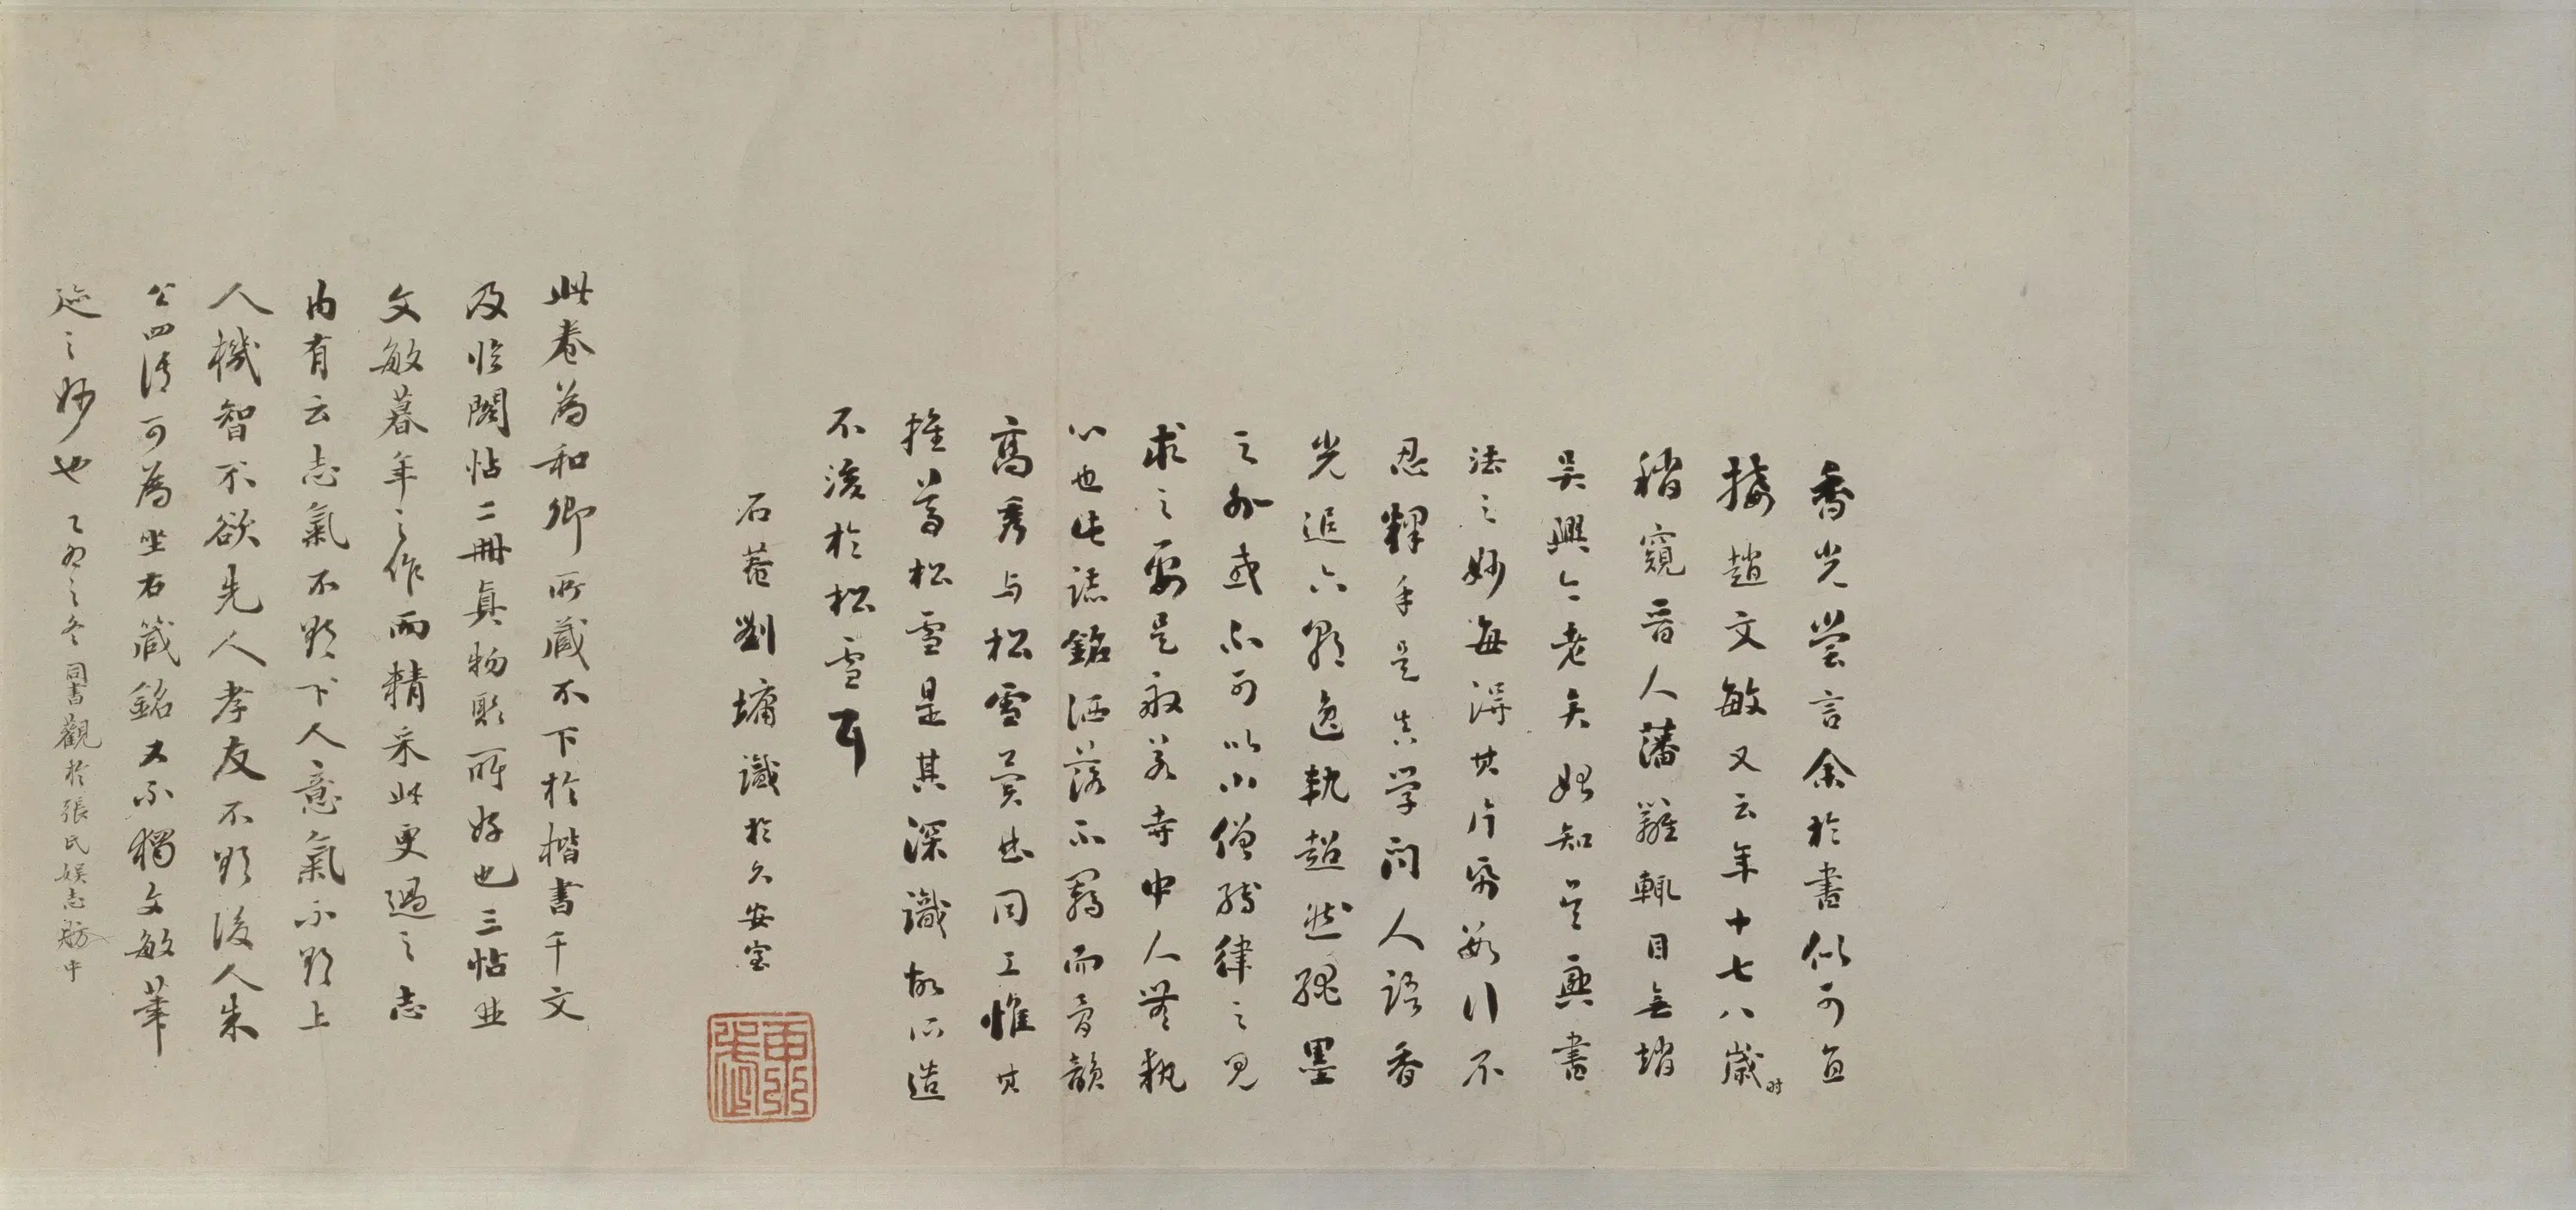 香光嘗言余於書似可直
接趙文敏又云年十七八歲時
稍窺晉人藩籬輒目無趙
吳興今老矣始知吳興書
法之妙每得其片紙數行不
忍釋手是真学问人語香
光追六朝逸軌超然繩墨
之外或不可以小僧縛律之見
求之要是永若寺中人無執
心也此誌銘洒落不羈而音韻
高秀与松雪異曲同工惟其
推尊松雪是其深識故所造
不後於松雪耳
石菴劉墉識於久安室
此卷為和卿所藏不下於楷書千文
及臨閣帖二冊真物聚所好也三帖並
文敏暮年之作而精采此更過之志
內有云志氣不欺下人意氣不欺上
人機智不欲先人孝友不欺後人朱
公四語可為坐右箴銘又不獨文敏筆
迹之妙也 乙卯之冬同書觀於張氏娱志舫中